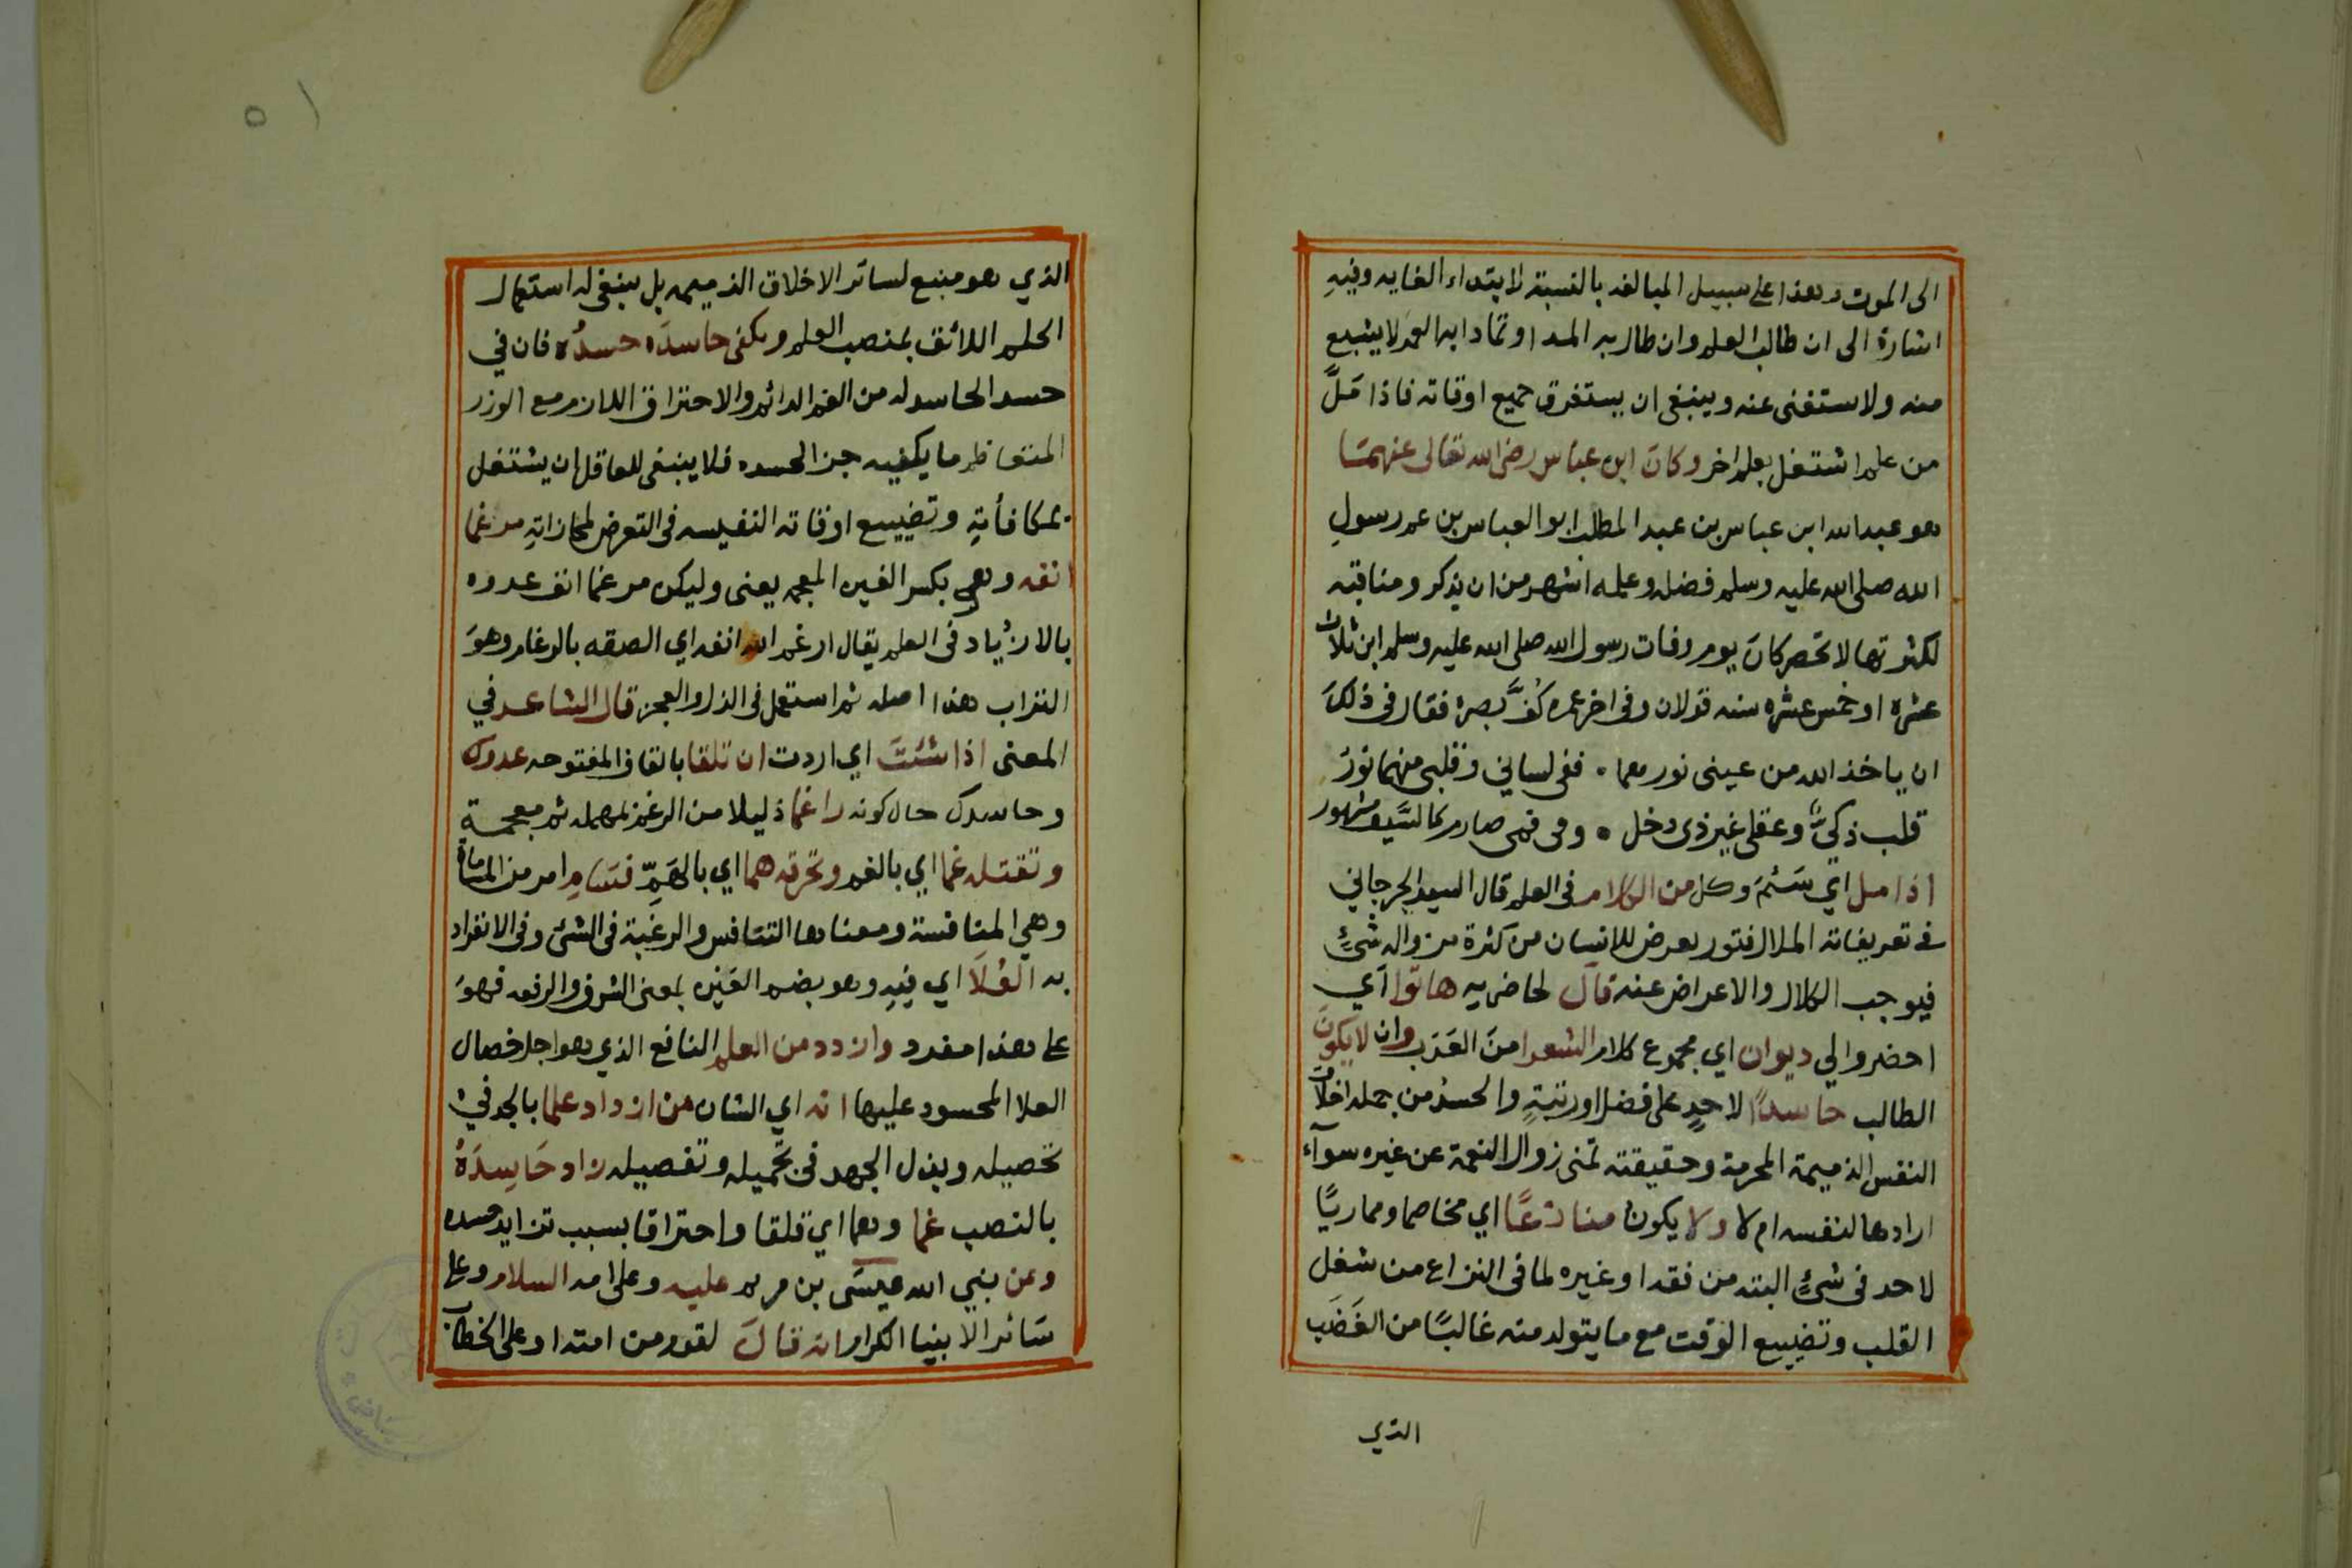 الى الموت وهذا على سبيل المبالغه بالنسبة لابتداء الغايه وفيهِ
اشارة الى ان طالب العلم وان طال به المدا وتمادا به العمر لا يشبع
منه ولا ستغنى عنه وينبغى ان يستغرق جميع اوقاته فاذا مَلَّ
من علم اشتغل بعلم اخر وكانَ ابن عباس رضى الله تعالى عنهمَا
هو عبدالله ابن عباس بن عبد المطلب ابو العباس بن عم رسولِ
الله صلى الله عليه وسلم فضله وعلمه اشهر من ان يذكر ومناقبه
لكثرتها لا تحصر كانَ يوم وفات رسول الله صلى الله عليه وسلم ابن ثلاث
عشره او خمس عشره سنه قولان وفى اخر عمره كُفَّ بصرهُ فقال فى ذلكَ
ان ياخذ الله من عينى نورهما . ففى لسانى وقلبى منهما نورُ
قلب ذكىٌّ وعقلى غير ذى دخل . وفى فمى صارم كالسَّيف مشهور
اذا مل اي سَئمَ وكل من الكلام فى العلم قال السيد الجرجاني
فى تعريفاته الملال فتور يعرض للانسان من كثرة مزواله شئٍ
فيوجب الكلال والاعراض عنه قالَ لحاضريه هاتوا اي
احضروا لي ديوان اي مجموع كلام الشعرا منَ العَرَب وان لا يكونَ
الطالب حاسداً لاحدٍ على فضل او رتبةٍ والحسدُ من جمله اخلاق
النفس الذميمة المحرمة وحقيقته تمنى زوال النعمة عن غيره سوآء
ارادها لنفسه ام لا ولا يكون منازعًا اي مخاصما ومماريًا
لاحد فى شئٍ البته من فقد او غيره لما فى النزاع من شغل
القلب وتضييع الوقت مع ما يتولد منه غالبًا من الغَضَب
الذي
٥١
الذي هو منبع لسائر الاخلاق الذميمه بل ينبغى له استعمال
الحلم اللائق بمنصب العلم ويكفى حاسدَه حسدُه فان في
حسد الحاسد له من الغم الدائم والاحتراق اللازم مع الوزر
المتعاظم ما يكفيه جزا لحسده فلا ينبغى للعاقل ان يشتغل
بمكافأتهِ وتضييع اوقاته النفيسه فى التعرض لمجازاتهِ مرغما
انفه وهى بكسر الغين المعجمه يعنى وليكن مرغما انف عدوه
بالازدياد فى العلم يقال ارغم الله انفه اي الصقه بالرغام وهوَ
التراب هذا اصله ثم استعمل فى الذل والعجز قال الشاعر في
المعنى اذا شئتَ اي اردت ان تلقا بالقاف المفتوحه عدوك
وحاسدك حال كونه راغما ذليلا من الرغم بمهمله ثم معجمة
وتقتله غما اي بالغم وتحرقه هما اي بالهَمِّ فسَامِ امر من المساماة
وهي المنافسة ومعناها التنافس والرغبة فى الشئ وفى الانفراد
به العُلَا اي فيهِ وهو بضم العَين بمعنى الشرف والرفعه فهوَ
على هذا مفرد وازدد من العلم النافع الذي هو اجل خصال
العلا المحسود عليها انه اي الشان من ازداد علما بالجد في
تحصيله وبذل الجهد فى تحميله وتفصيله زاد حَاسِدَهُ
بالنصب غما وهما اي قلقا واحتراقا بسبب تزايد حسده
وعن نبي الله عيسَى بن مريم عليه وعلى امه السلام وعلى
سَائر الانبيا الكرام انه قالَ لقومه من امتداد على الخطاب